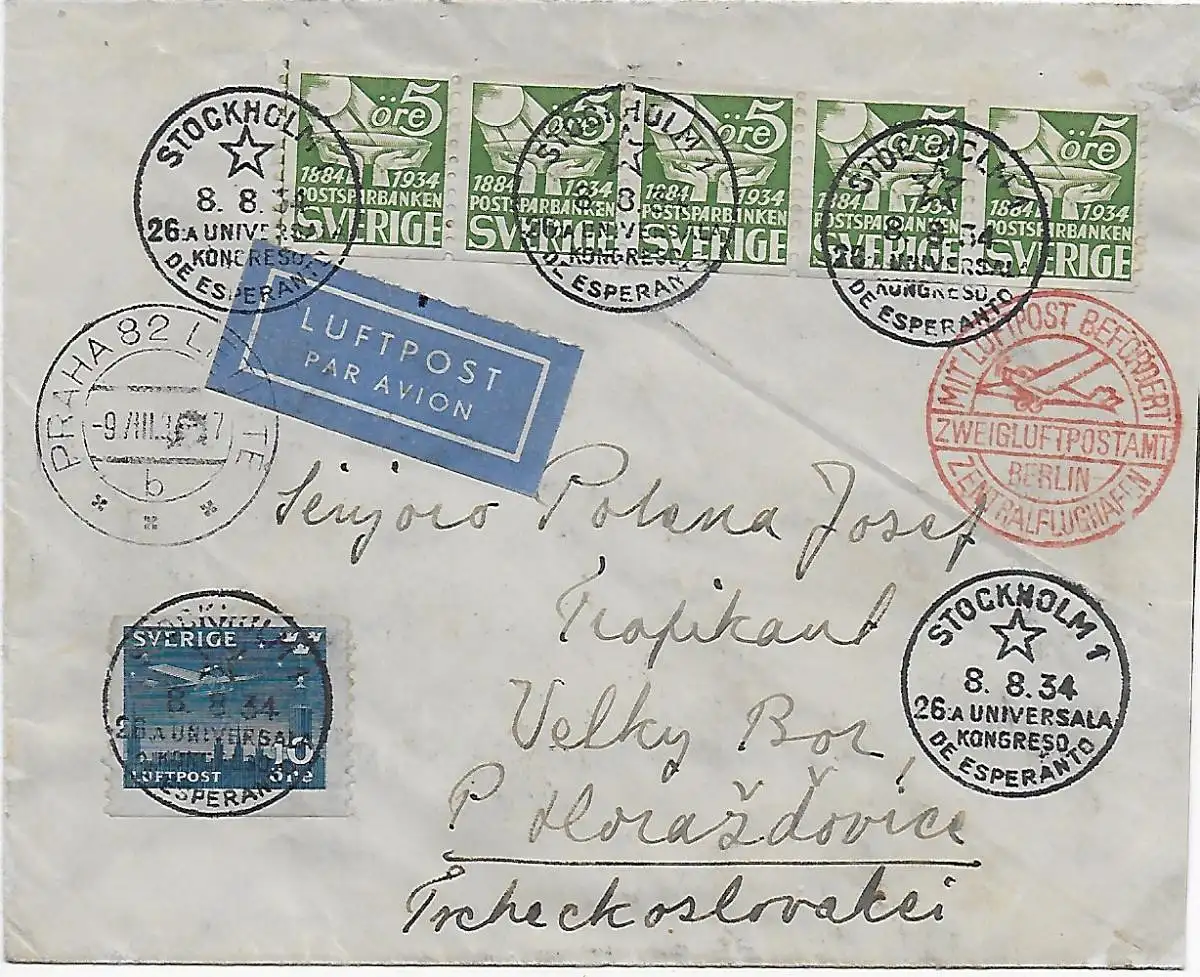 öre 5
1884 1934
POSTSPARBANKEN
SVERIGE
öre 5
1884 1934
POSTSPARBANKEN
SVERIGE
öre 5
1884 1934
POSTSPARBANKEN
SVERIGE
öre 5
1884 1934
POSTSPARBANKEN
SVERIGE
öre 5
1884 1934
POSTSPARBANKEN
SVERIGE
STOCKHOLM 1
8. 8. 34
26:A UNIVERSALA
KONGRESO
DE ESPERANTO
STOCKHOLM 1
8. 8. 34
26:A UNIVERSALA
KONGRESO
DE ESPERANTO
STOCKHOLM 1
8. 8. 34
26:A UNIVERSALA
KONGRESO
DE ESPERANTO
LUFTPOST
PAR AVION
PRAHA 82
b
MIT LUFTPOST BEFÖRDERT
ZWEIGLUFTPOSTAMT
BERLIN
ZENTRALFLUGHAFEN
Sinjoro Polana Josef
Trafikant
Velky Bor
P. Horažďovice
Tscheckoslovakei
SVERIGE
10
LUFTPOST öre
STOCKHOLM 1
8. 8. 34
26:A UNIVERSALA
KONGRESO
DE ESPERANTO
STOCKHOLM 1
8. 8. 34
26:A UNIVERSALA
KONGRESO
DE ESPERANTO